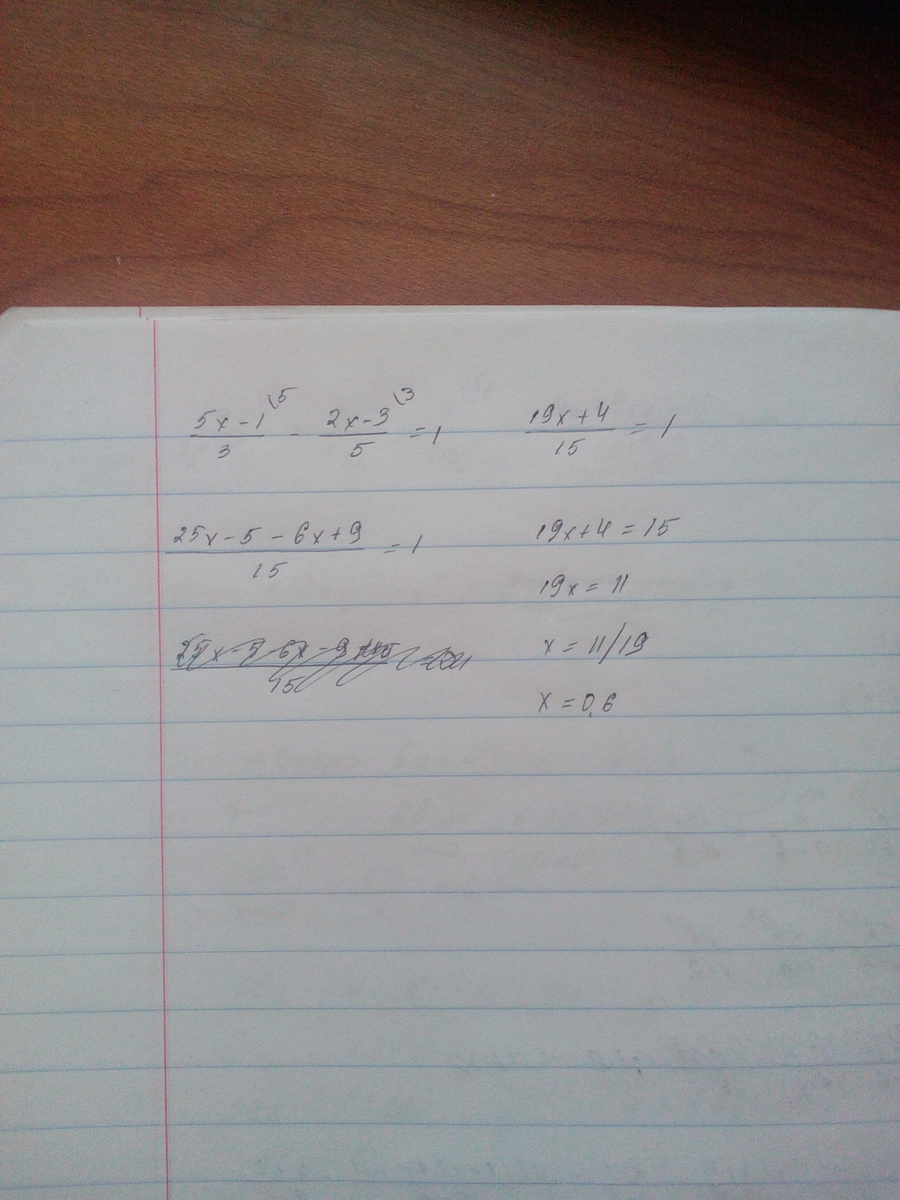 (5x-1)/3 \5 - (2x-3)/5 \3 = 1
(25x-5-6x+9)/15 = 1
(19x+4)/15 = 1
19x+4=15
19x=11
x=11/19
x=0,6